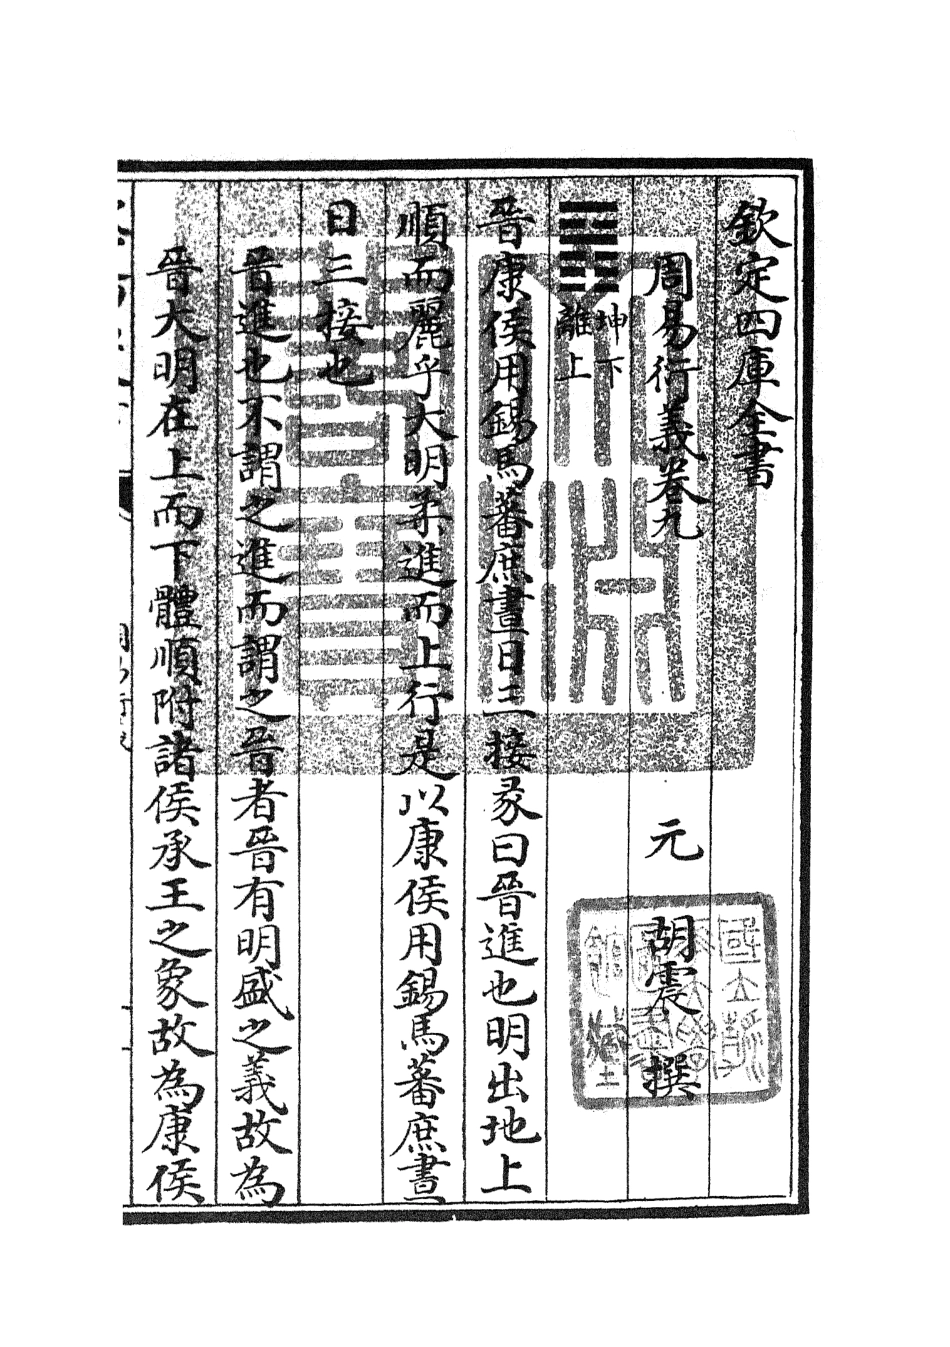 欽定四庫全書
周易衍義卷九
元 胡震 撰
䷢ 坤下
離上
晉康侯用錫馬蕃庶晝日三接彖曰晉進也明出地上
順而麗乎大明柔進而上行是以康侯用錫馬蕃庶晝
日三接也
晉進也不謂之進而謂之晉者晉有明盛之義故為
晉大明在上而下體順附諸侯承王之象故為康侯